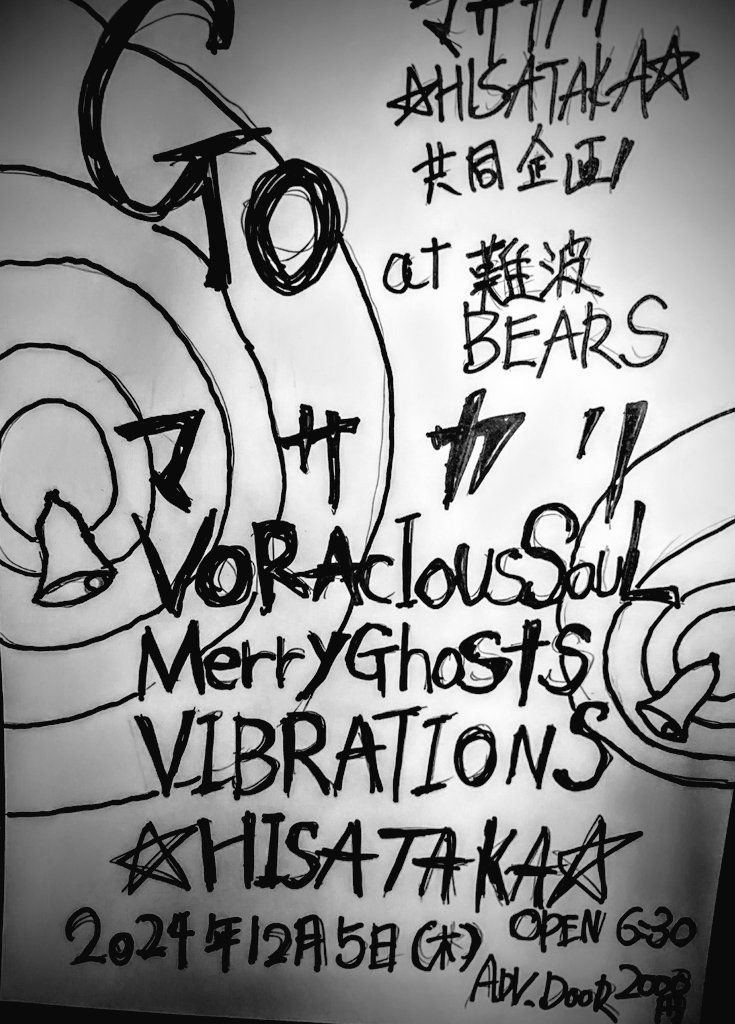 マサカリ
☆HISATAKA☆
共同企画!
GO
at 難波
BEARS
マサカリ
VORAcIousSouL
MerryGhosts
VIBRATIONS
☆HISATAKA☆
2024年12月5日(木) OPEN 6:30
ADV.DooR 2000円